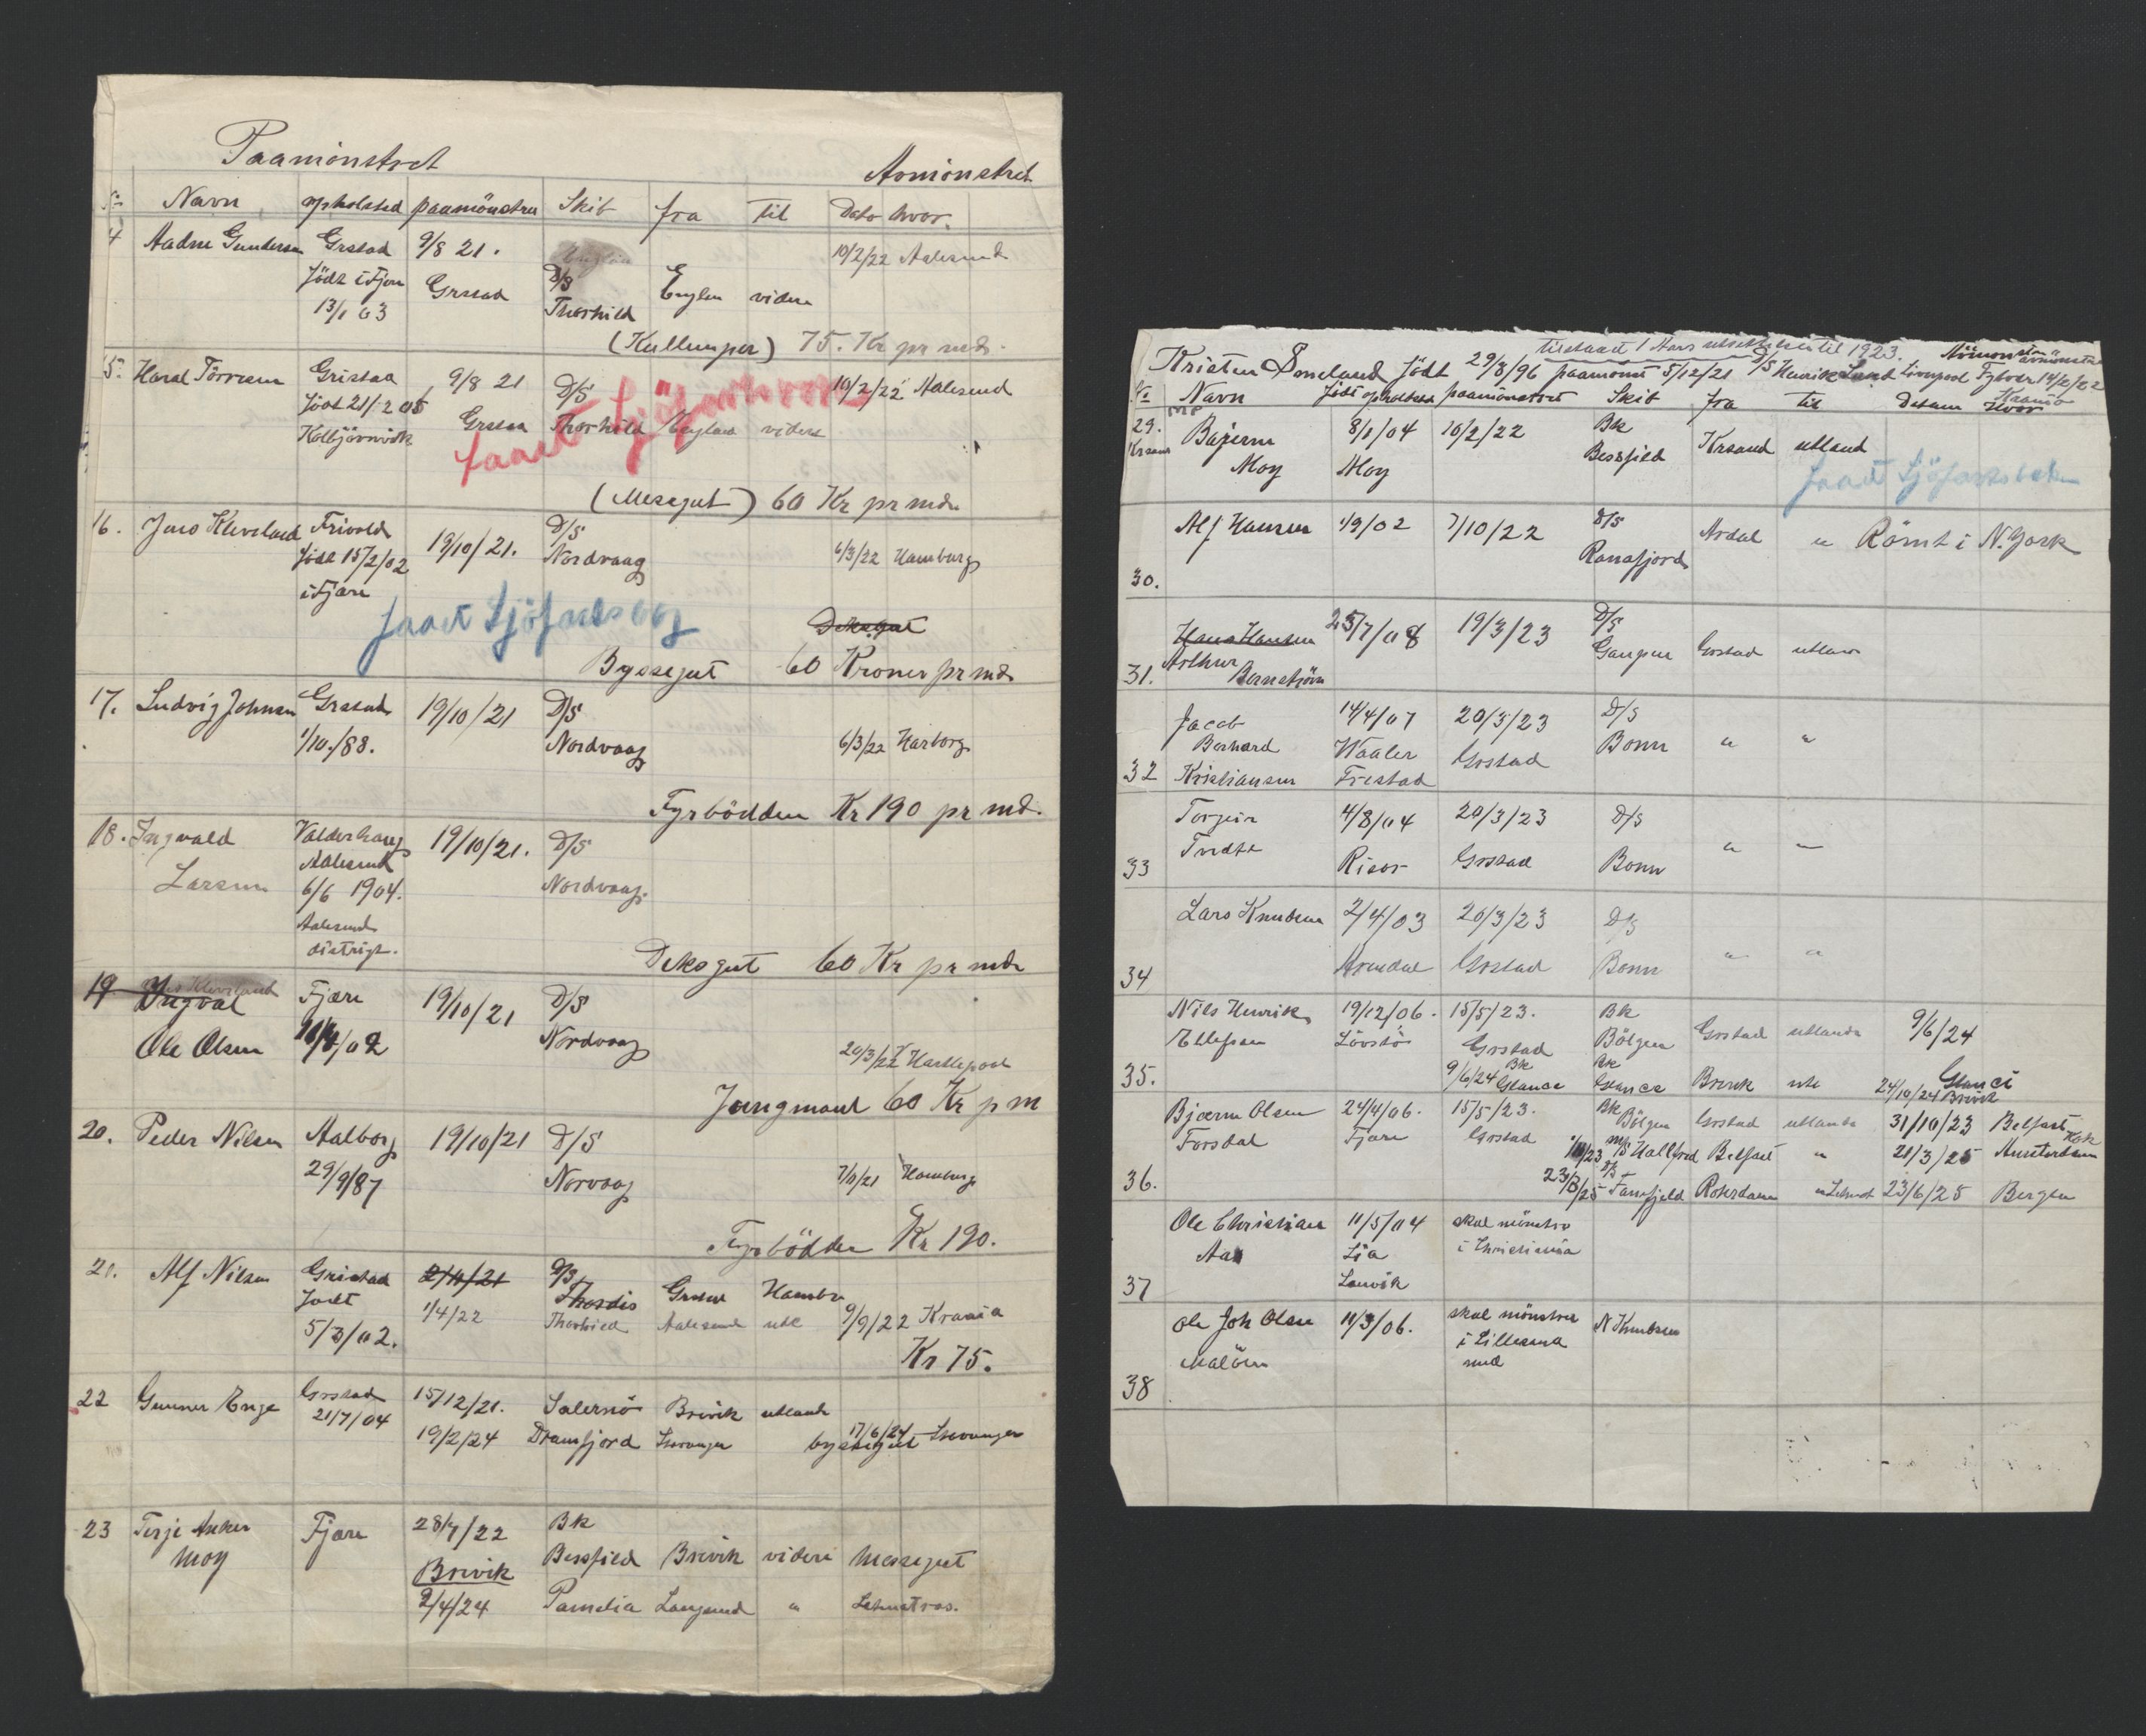 Paamönstret
Avmönstret
No Navn opholsted paamönstret Skib fra til Dato hvor.
4 Aadne Gundersen Grstad 9/8 21. 10/2/22 Aalesund
Födt i Fjære Grstad D/S Englan videre
13/1 03 Thorhild
(Kullemper) 75. Kr pr md.
15. Haral Törresen Gristad 9/8 21 D/S 10/2/22 Aalesund
Födt 21/-2 05 Grstad Thorhild England videre
Kolbjörnsvik
faaet Sjöfartsbog
(Messegut) 60 Kr pr md.
16. Jens Kleveland Frivold 19/10/21. D/S
Födt 15/2/02 Nordvaag 6/3/22 Hamburg
i Fjære
faaet Sjöfartsbog
Deksgut
Byssegut 60 Kroner pr md.
17. Ludvig Johnsen Grstad 19/10/21 D/S
1/10./88. Nordvaag 6/3/22 Harborg
Fyrbödder Kr 190 pr md.
18. Ingvald Valderhaug 19/10/21. D/S
Larsen Aalesund
6/6 1904. Nordvaag.
Aalesund
distrigt.
Deksgut 60 Kr pr md
19 Jens Kleveland
Ingval Fjære 19/10/21 D/S
Ole Olsen /02 Nordvaag
20/3/22 Hartlepool
Jungmand 60 Kr p m
20. Peder Nilsen Aalborg 19/10/21 D/S
29/9/87 Norvaag Hamburg
Fyrbödder Kr 190.
21. Alf Nilsen Gristad 2/11/21 D/S Thordis Grstad Hambr
Födt 1/4/22 Thorhild Aalesund utl 9/9/22 Krania
5/3/02.
Kr 75.
22 Gunner Enge Grstad 15/12/21. Salersnö Brevik utlande
21/7/04 19/2/24 Dramfjord Stavanger byssegut 17/6/24 Stavanger
23 Terje Anker Fjære 28/7/22 Bk
Moy Brevik Bessfield Brevik videre Messegut
2/4/24 Pamelia Langsund " Letmatros.
tilstaaet 1 Aars utsettelse til 1923.
Kristen Smeland Födt 29/8/96 paamönst 5/12/21 D/S Henrik Lund Liverpool Fyrböder 14/2/22
Avmönstret
No Navn Födt opholdsted paamönstret Skib fra til Datum Hvor
29. Bajerne 8/1/04 16/2/22 Bk
Krsand Moy Moy Bessfield Krsand utland
faaet Sjöfartsbok
Alf Hansen 1/9/02 7/10/22 D/S Ardal " Römt i N. York
30. Ranafjord
Hans Hansen 25/7/08 19/3/23 D/S
31. Arthur Bernstsöm Gaupen Grstad utlan
Jacob 14/4/07 20/3/23 D/S
Berhard Waaler Grstad Bonn " "
32 Kristiansen Frestad
Torgeir 4/8/04 20/3/23 D/S
33 Tredte Risör Grstad Bonn " "
Lars Knudsen 2/4/03 20/3/23 D/S
34 Arendal Grstad Bonn " "
Nils Henrik 19/12/06. 15/5/23. Bk
Ellefsen Grstad Bölgen Grstad utlande 9/6/24
35. 9/6/24 Bk Glance Bk Glance Brevik utl 24/10/24 Glance Brevik
Bjærne Olsen 24/4/06. 15/5/23. Bk Bölgen Grstad utlande 31/10/23 Belfast
Forsdal Fjære Grstad /23 M/S Hallfred Belfast " 21/3/25 Amsterdam
36. 23/3/25 D/S Tansfjeld Roterdam " 23/6/25 Bergen
Ole Christian 11/5/04 skal mönstre
Aas Lia i Christiania
37 Lauvik
Ole Joh Olsen 11/3/06. skal mönstre N Knudsen
Malöen i Lillesand
38 med